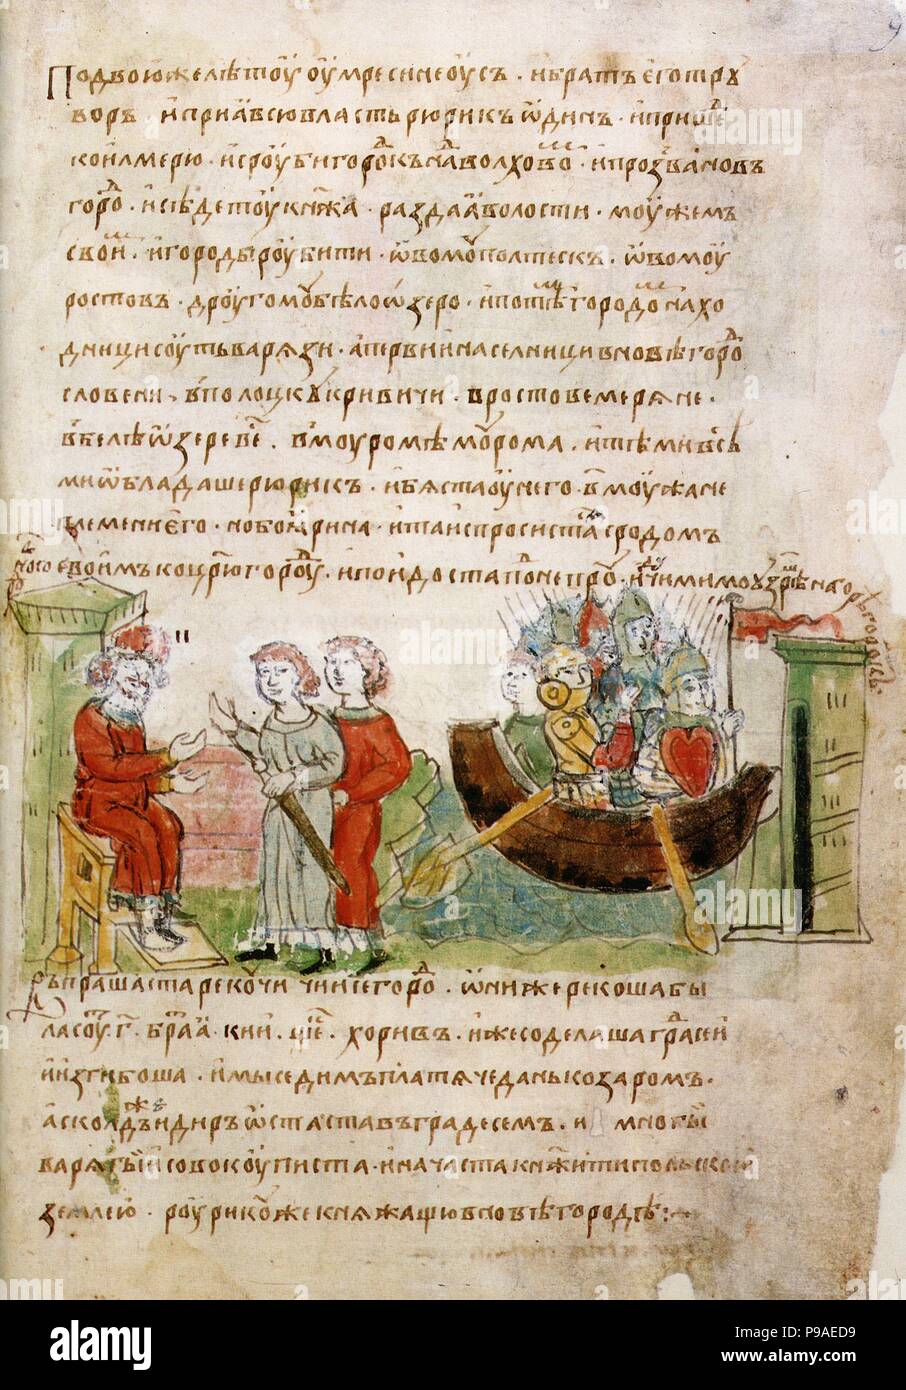 9
Подвоюжелѣтоу оумресинеоусъ · ибратъ єготру
воръ · ипрıавсювластьрюрикъ ѡдинъ · ипришє
коилмерю · исроубигородкънадволхово · ипрозванов
горо · исѣдетоукнѧжа · раздааволости · моужемъ
свои · игородыроубити · ѡвомоуполтескъ · ѡвомоу
ростовъ · дроугомубѣлоѡзеро · ипотѣгородо наход
дницисоутьварѧзи · апервиинаселницивновѣгоро
словени · вполоцкукривичи · вростовемерѧне ·
вбелѣѡзеревесь · вмоуромѣмоурома · итѣмивсѣ
миѡбладашерюрикъ · ибѧстаоунего · в҃моужане
племениєго · нобоıарина · итаиспросиста сродомъ
своимъкоцрюгороу · ипоидостаподнепроу · идоучимимо узрѣстанагорѣ
городокъ
Въпрашастарекоучи чиисегоро · ѡнижерекошабы
ласоуг҃ · братıа · кии · щекъ · хоривъ · ижесоделашаградсеи
иизгибоша · имыседимъплатѧчеданькозаромъ ·
асколдъжеидиръѡстаставъградесемъ · и многы
варѧгыисовокоуписта · иначастакнѧжитипольскою
землею · роурикоужекнѧжащювновѣгородѣ :·
alamy
Image ID: P9AED9
www.alamy.com